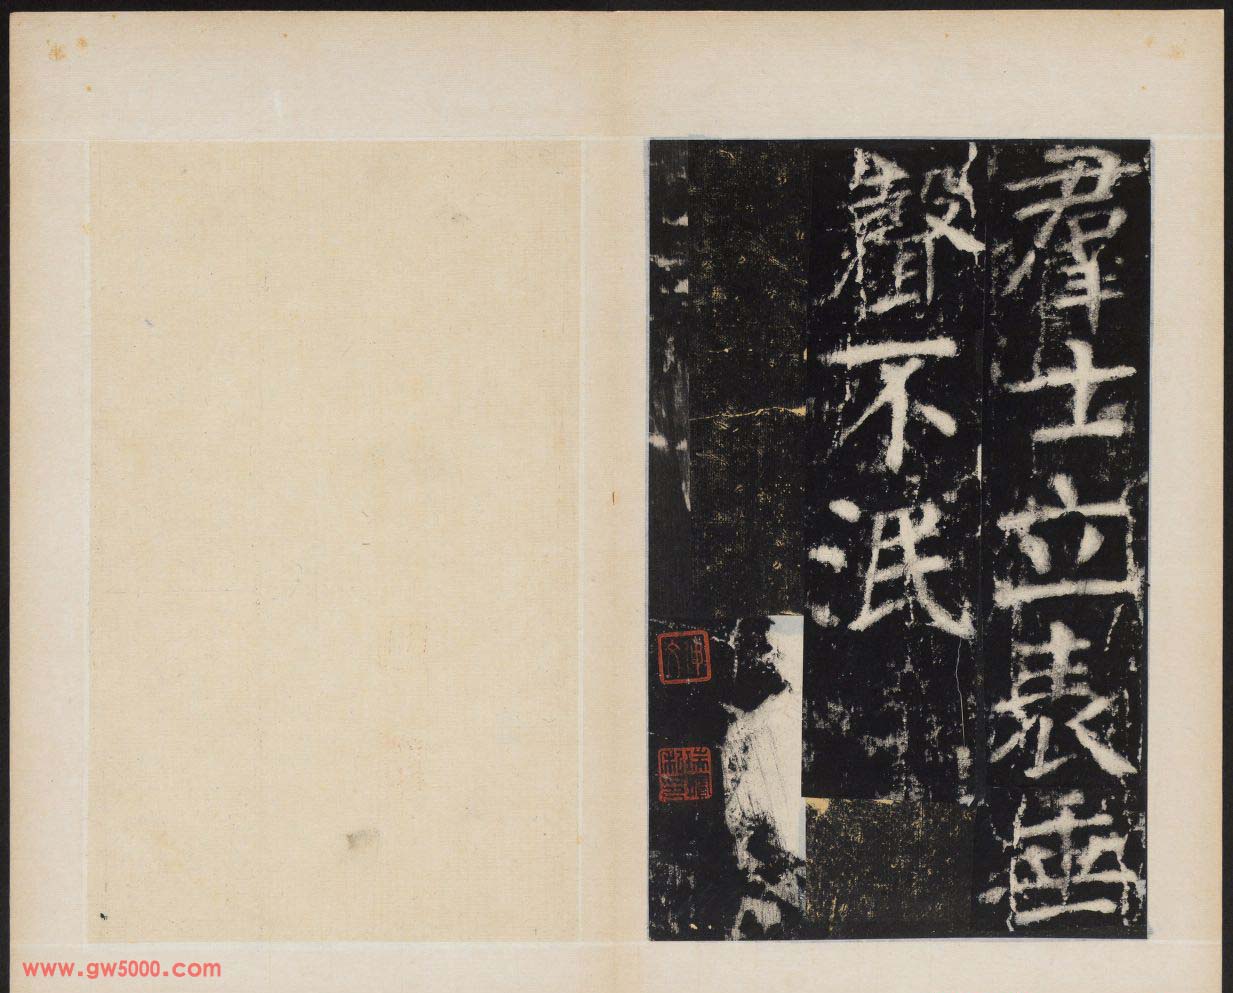 羣士立表垂
聲不泯
www.gw5000.com